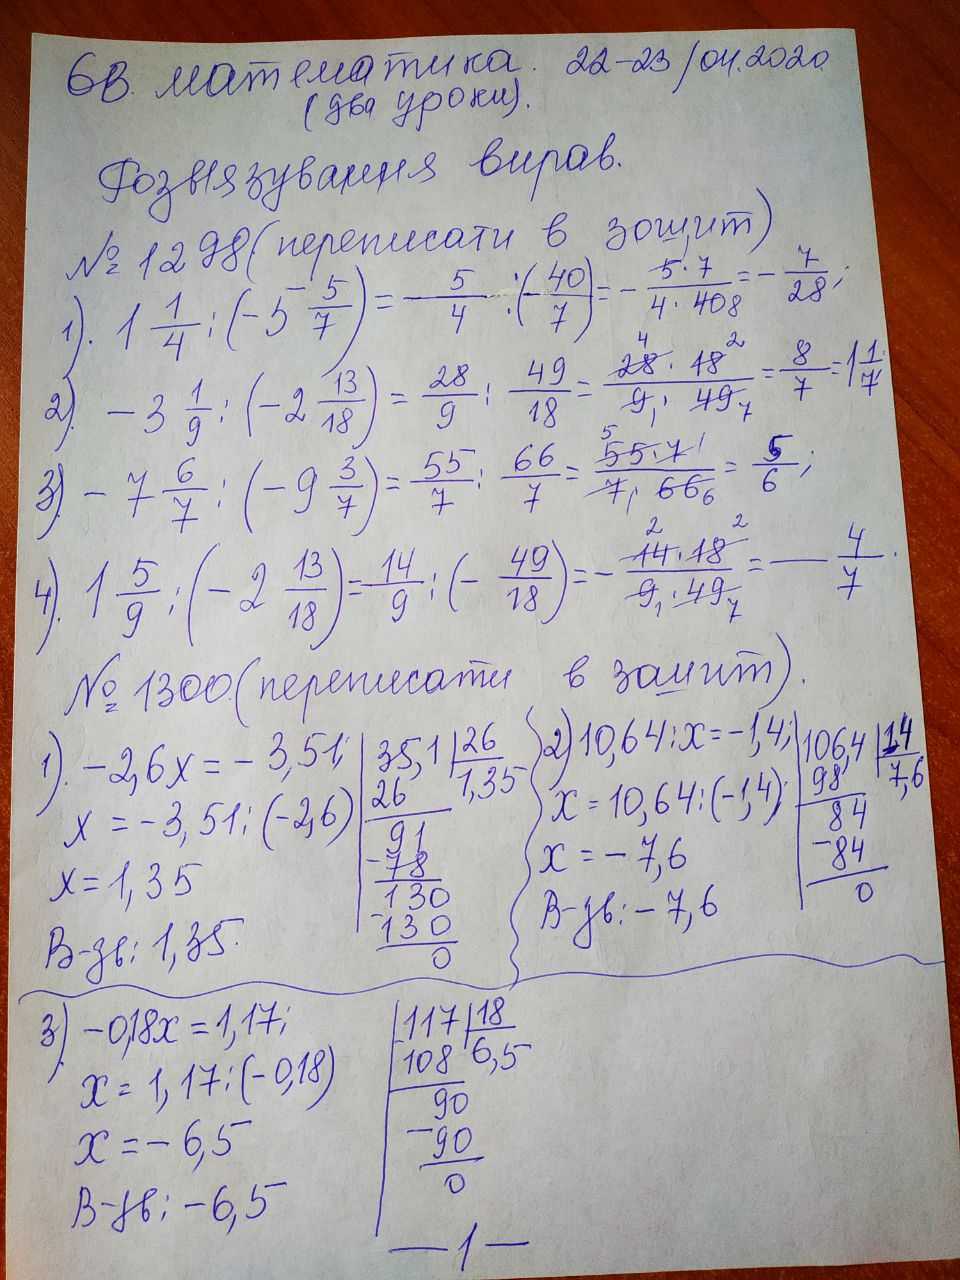 6В. математика. 22-23/04.2020.
(два уроки).
Розв'язування вправ.
№ 1298 (переписати в зошит)
1). 1 1/4 : (-5 5/7) = -5/4 : (-40/7) = - 5·7/4·40 8 = - 7/28;
2). -3 1/9 : (-2 13/18) = 28/9 : 49/18 = 28 4 · 18 2/9 1 · 49 7 = 8/7 = 1 1/7;
3). -7 6/7 : (-9 3/7) = 55/7 : 66/7 = 55 5 · 7 1/7 1 · 66 6 = 5/6;
4). 1 5/9 : (-2 13/18) = 14/9 : (-49/18) = - 14 2 · 18 2/9 1 · 49 7 = - 4/7.
№ 1300. (переписати в зошит).
1). -2,6x = -3,51;
x = -3,51 : (-2,6)
x = 1,35
В-дь: 1,35.
35,1 26
26 1,35
91
-78
130
-130
0
2) 10,64 : x = -1,4;
x = 10,64 : (-1,4);
x = -7,6
В-дь: -7,6
106,4 14
98 7,6
84
-84
0
3). -0,18x = 1,17;
x = 1,17 : (-0,18)
x = -6,5
В-дь: -6,5
117 18
108 6,5
90
-90
0
— 1 —